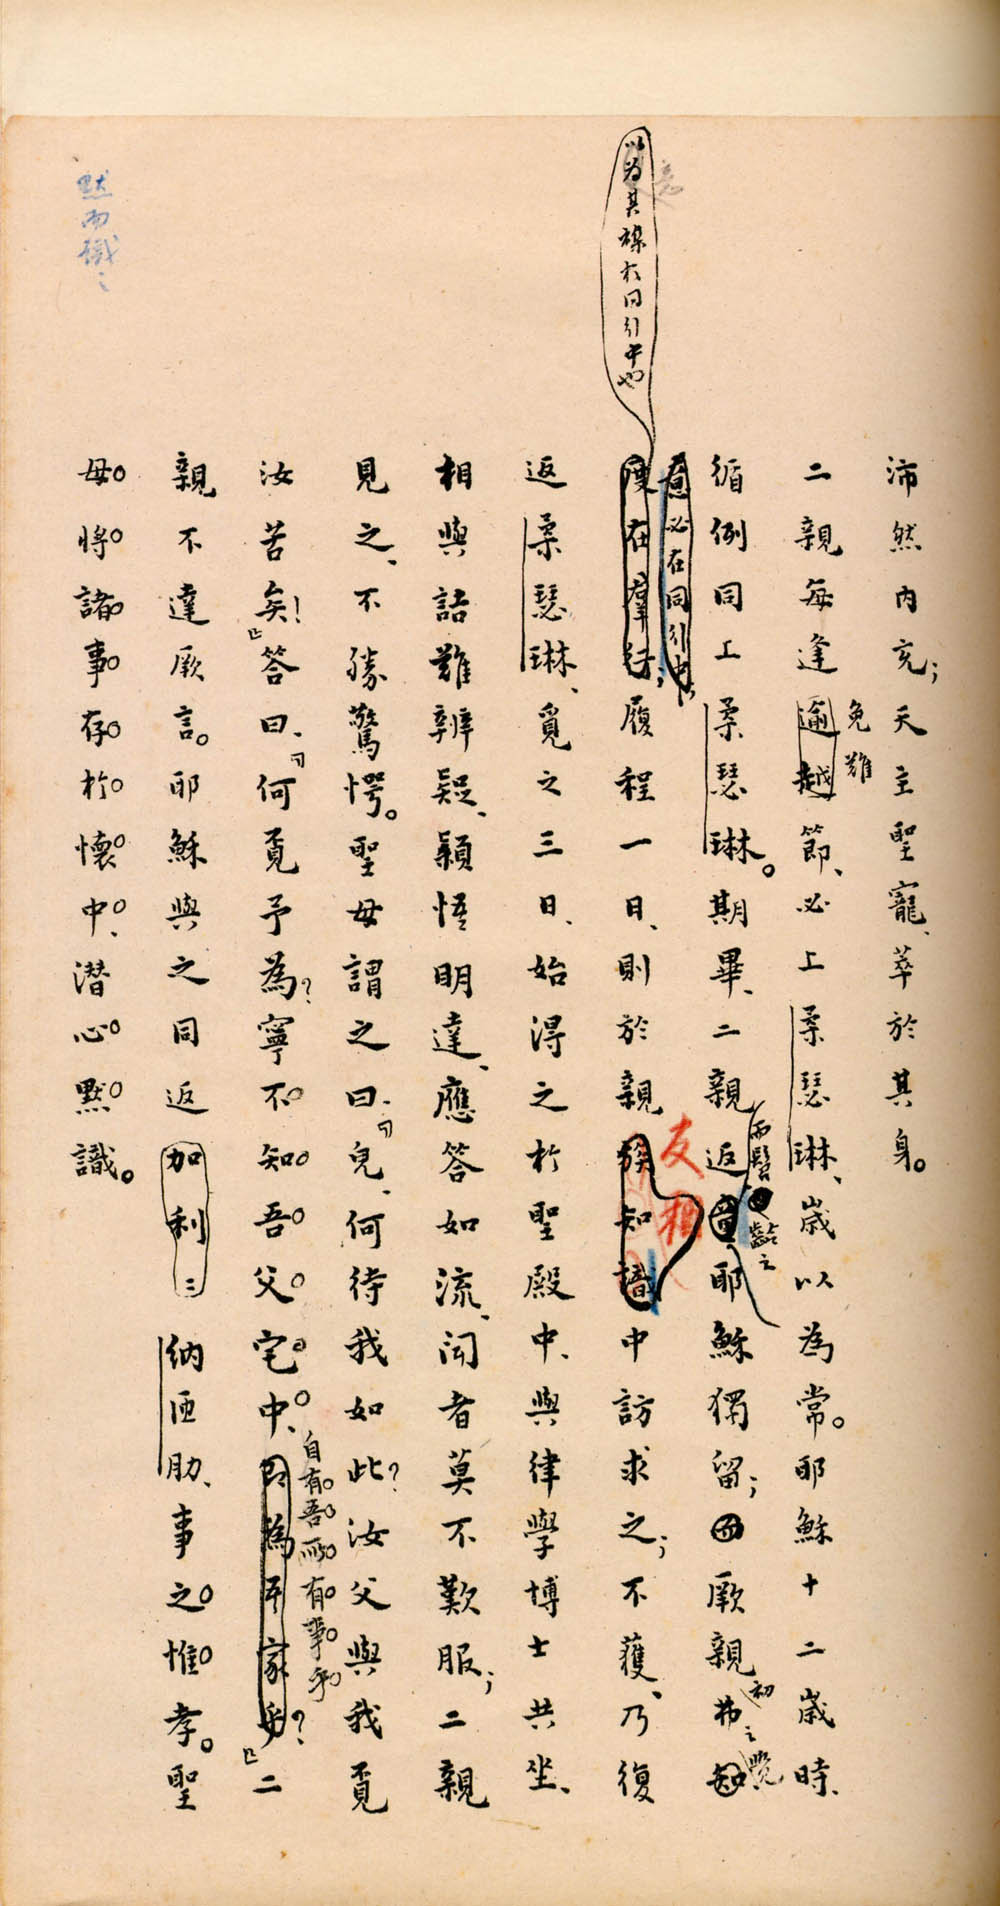 沛然內充；天主聖寵、萃於其身。
免難
二親每逢逾越節、必上柔瑟琳、歲以為常。耶穌十二歲時、
而髫齡之
初之覺
循例同上柔瑟琳。期畢、二親返耶穌獨留；厥親弗知
意必在同引中，
友相
以為其雜於同引中也
度在羣行；履程一日、則於親族知識中訪求之；不獲、乃復
返柔瑟琳、覓之三日、始得之於聖殿中、與律學博士共坐、
相與詰難辨疑、穎悟明達、應答如流、聞者莫不歎服；二親
見之、不勝驚愕。聖母謂之曰、「兒、何待我如此？汝父與我覓
汝苦矣！」答曰、「何覓予為？寧不知吾父宅中、即為吾家乎？」二
自有吾所有事乎
親不達厥言。耶穌與之同返加利三納匝肋、事之惟孝。聖
母將諸事存於懷中、潛心默識。
默而識之